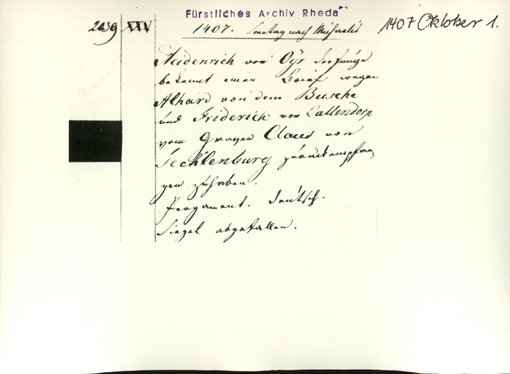 2439 XXV
Fürstliches Archiv Rheda
1407 Oktober 1.
1407. Sonntag nach Michaelis
Heidenrich von Oyr der Junge
bekennt einen Brief wegen
Alhard von dem Busche
und Friderich von Callendorp
vom Graven Claus von
Tecklenburg zurückempfan
gen zu haben.
Pergament. Deutsch.
Siegel abgefallen.